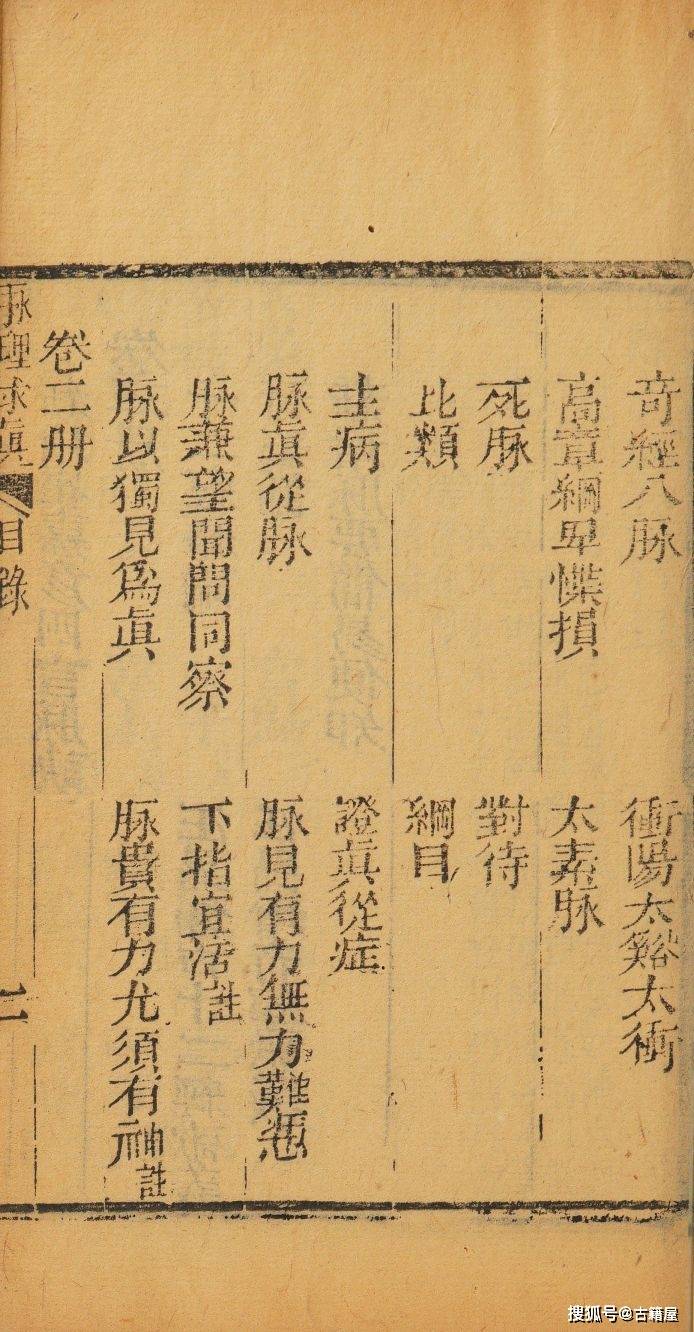 奇經八脉　衝陽太谿太衝
高章綱卑惵損　太素脉
死脉　對待
比類　綱目
主病　證眞從症
脉眞從脉　脉見有力無力難慿
脉兼望聞問同察　下指宜活註
脉以獨見爲眞　脉貴有力尤須有神註
卷二册
脉理求眞　目錄　二
搜狐号@古籍屋